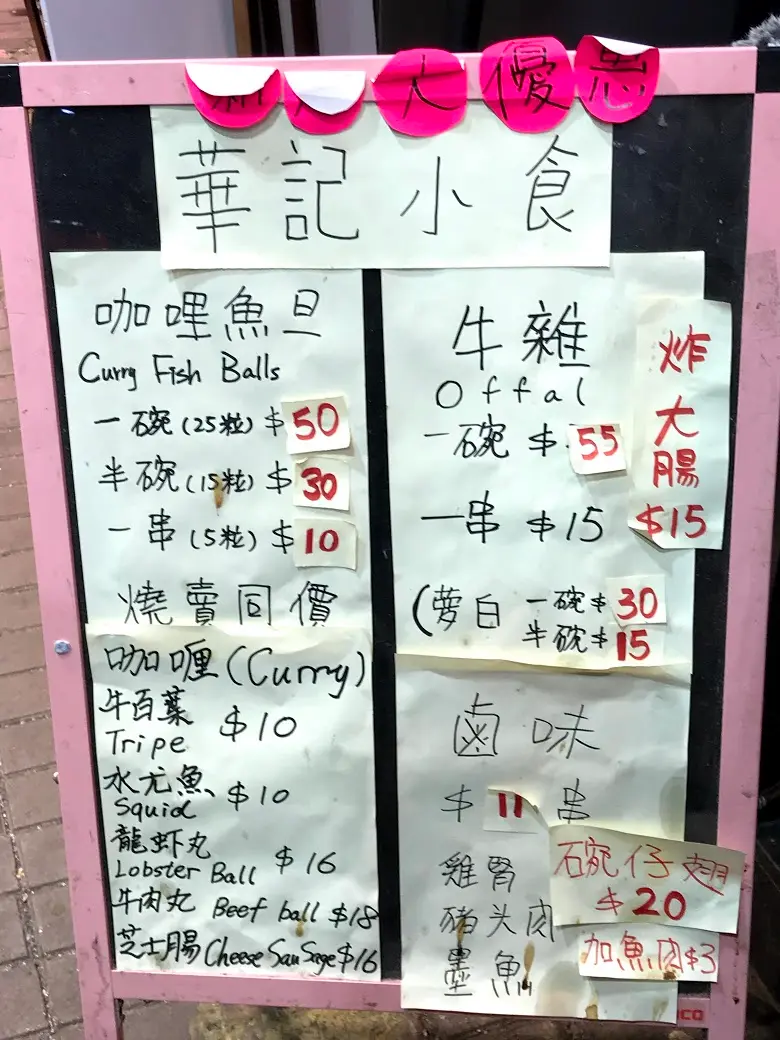 大優惠
華記小食
咖哩魚旦
Curry Fish Balls
一碗(25粒) $50
半碗(15粒) $30
一串(5粒) $10
燒賣同價
咖喱(Curry)
牛百葉 $10
Tripe
水尤魚 $10
Squid
龍虾丸 $16
Lobster Ball
牛肉丸 Beef ball $18
芝士腸 Cheese Sausage $16
牛雜
Offal
一碗 $55
一串 $15
(萝白 一碗$30
半碗$15
炸大腸
$15
鹵味
$11串
雞腎
豬头肉
墨魚
碗仔翅
$20
加魚肉$3